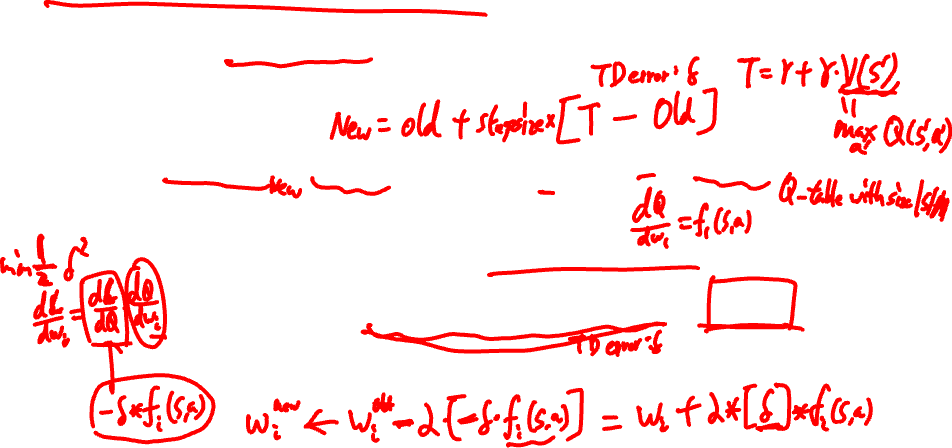 TD error: δ T = r + γ · V(s')
New = old + stepsize × [T − Old]
max Q(s',a')
a'
New
Q-table with size |S||A|
dQ/dw_i = f_i(s,a)
min 1/2 δ²
dL/dw_i = dL/dQ dQ/dw_i
TD error: δ
-δ * f_i(s,a)
w_i^new ← w_i^old − α [−δ · f_i(s,a)] = w_i + α * [δ] * f_i(s,a)